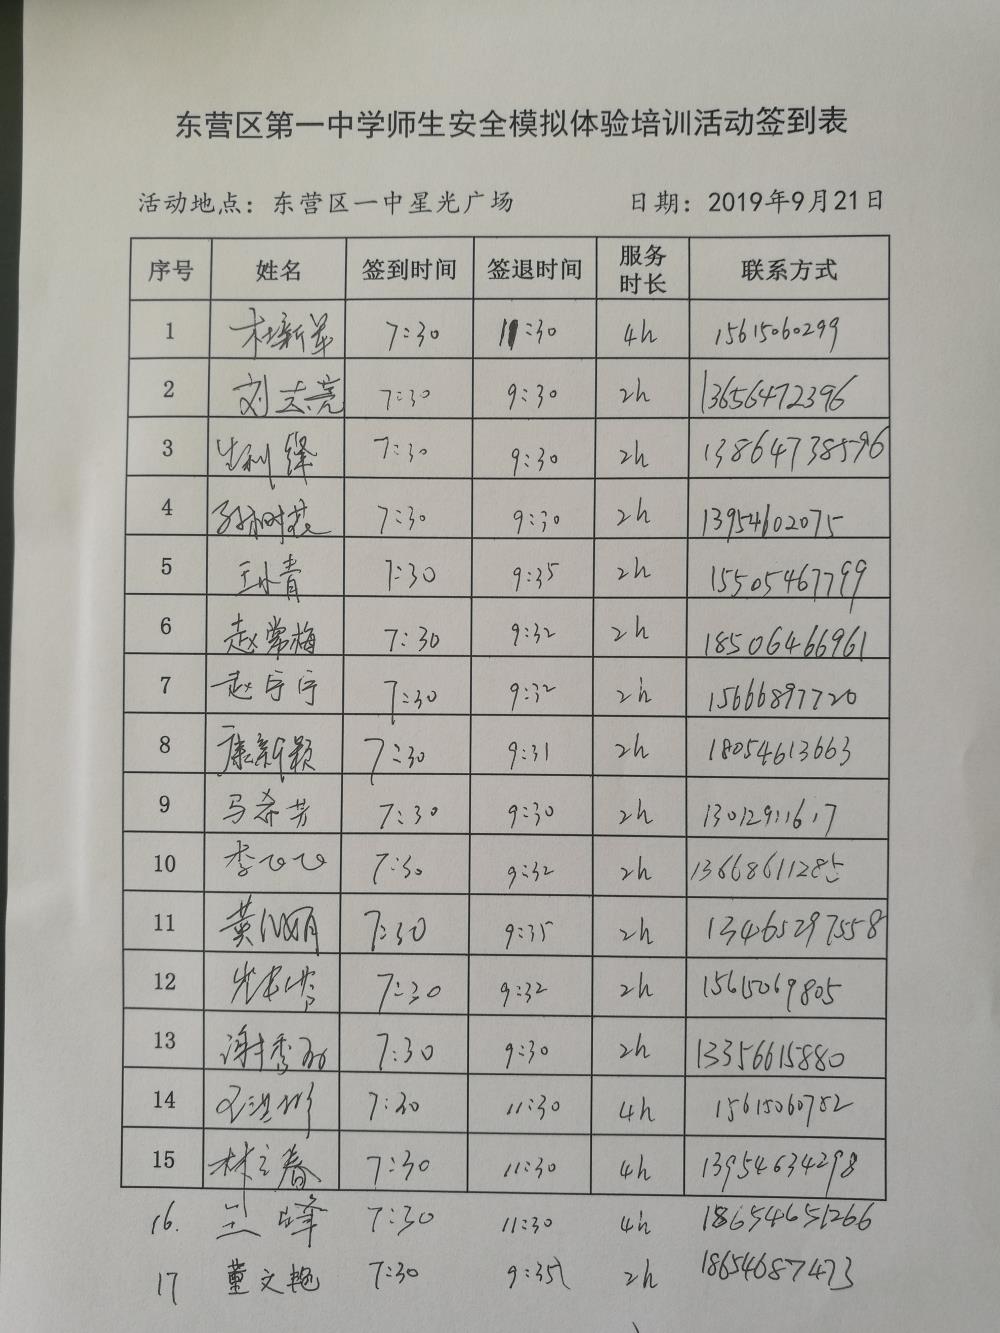 东营区第一中学师生安全模拟体验培训活动签到表
活动地点：东营区一中星光广场 日期：2019年9月21日
序号 姓名 签到时间 签退时间 服务时长 联系方式
1 杜新军 7:30 11:30 4h 15615060299
2 刘志亮 7:30 9:30 2h 13656472396
3 7:30 9:30 2h 13864738596
4 7:30 9:30 2h 13954602075
5 7:30 9:35 2h 15505467799
6 赵常梅 7:30 9:32 2h 18506466961
7 赵宁宁 7:30 9:32 2h 15666897720
8 康新颖 7:30 9:31 2h 18054613663
9 马希芳 7:30 9:30 2h 13012911617
10 李飞飞 7:30 9:32 2h 13668611285
11 7:30 9:35 2h 13465297558
12 7:30 9:32 2h 15615069805
13 7:30 9:30 2h 13356615880
14 7:30 11:30 4h 15615060782
15 林立春 7:30 11:30 4h 13954634298
16. 兰峰 7:30 11:30 4h 18654651266
17 董文艳 7:30 9:35 2h 18654687473